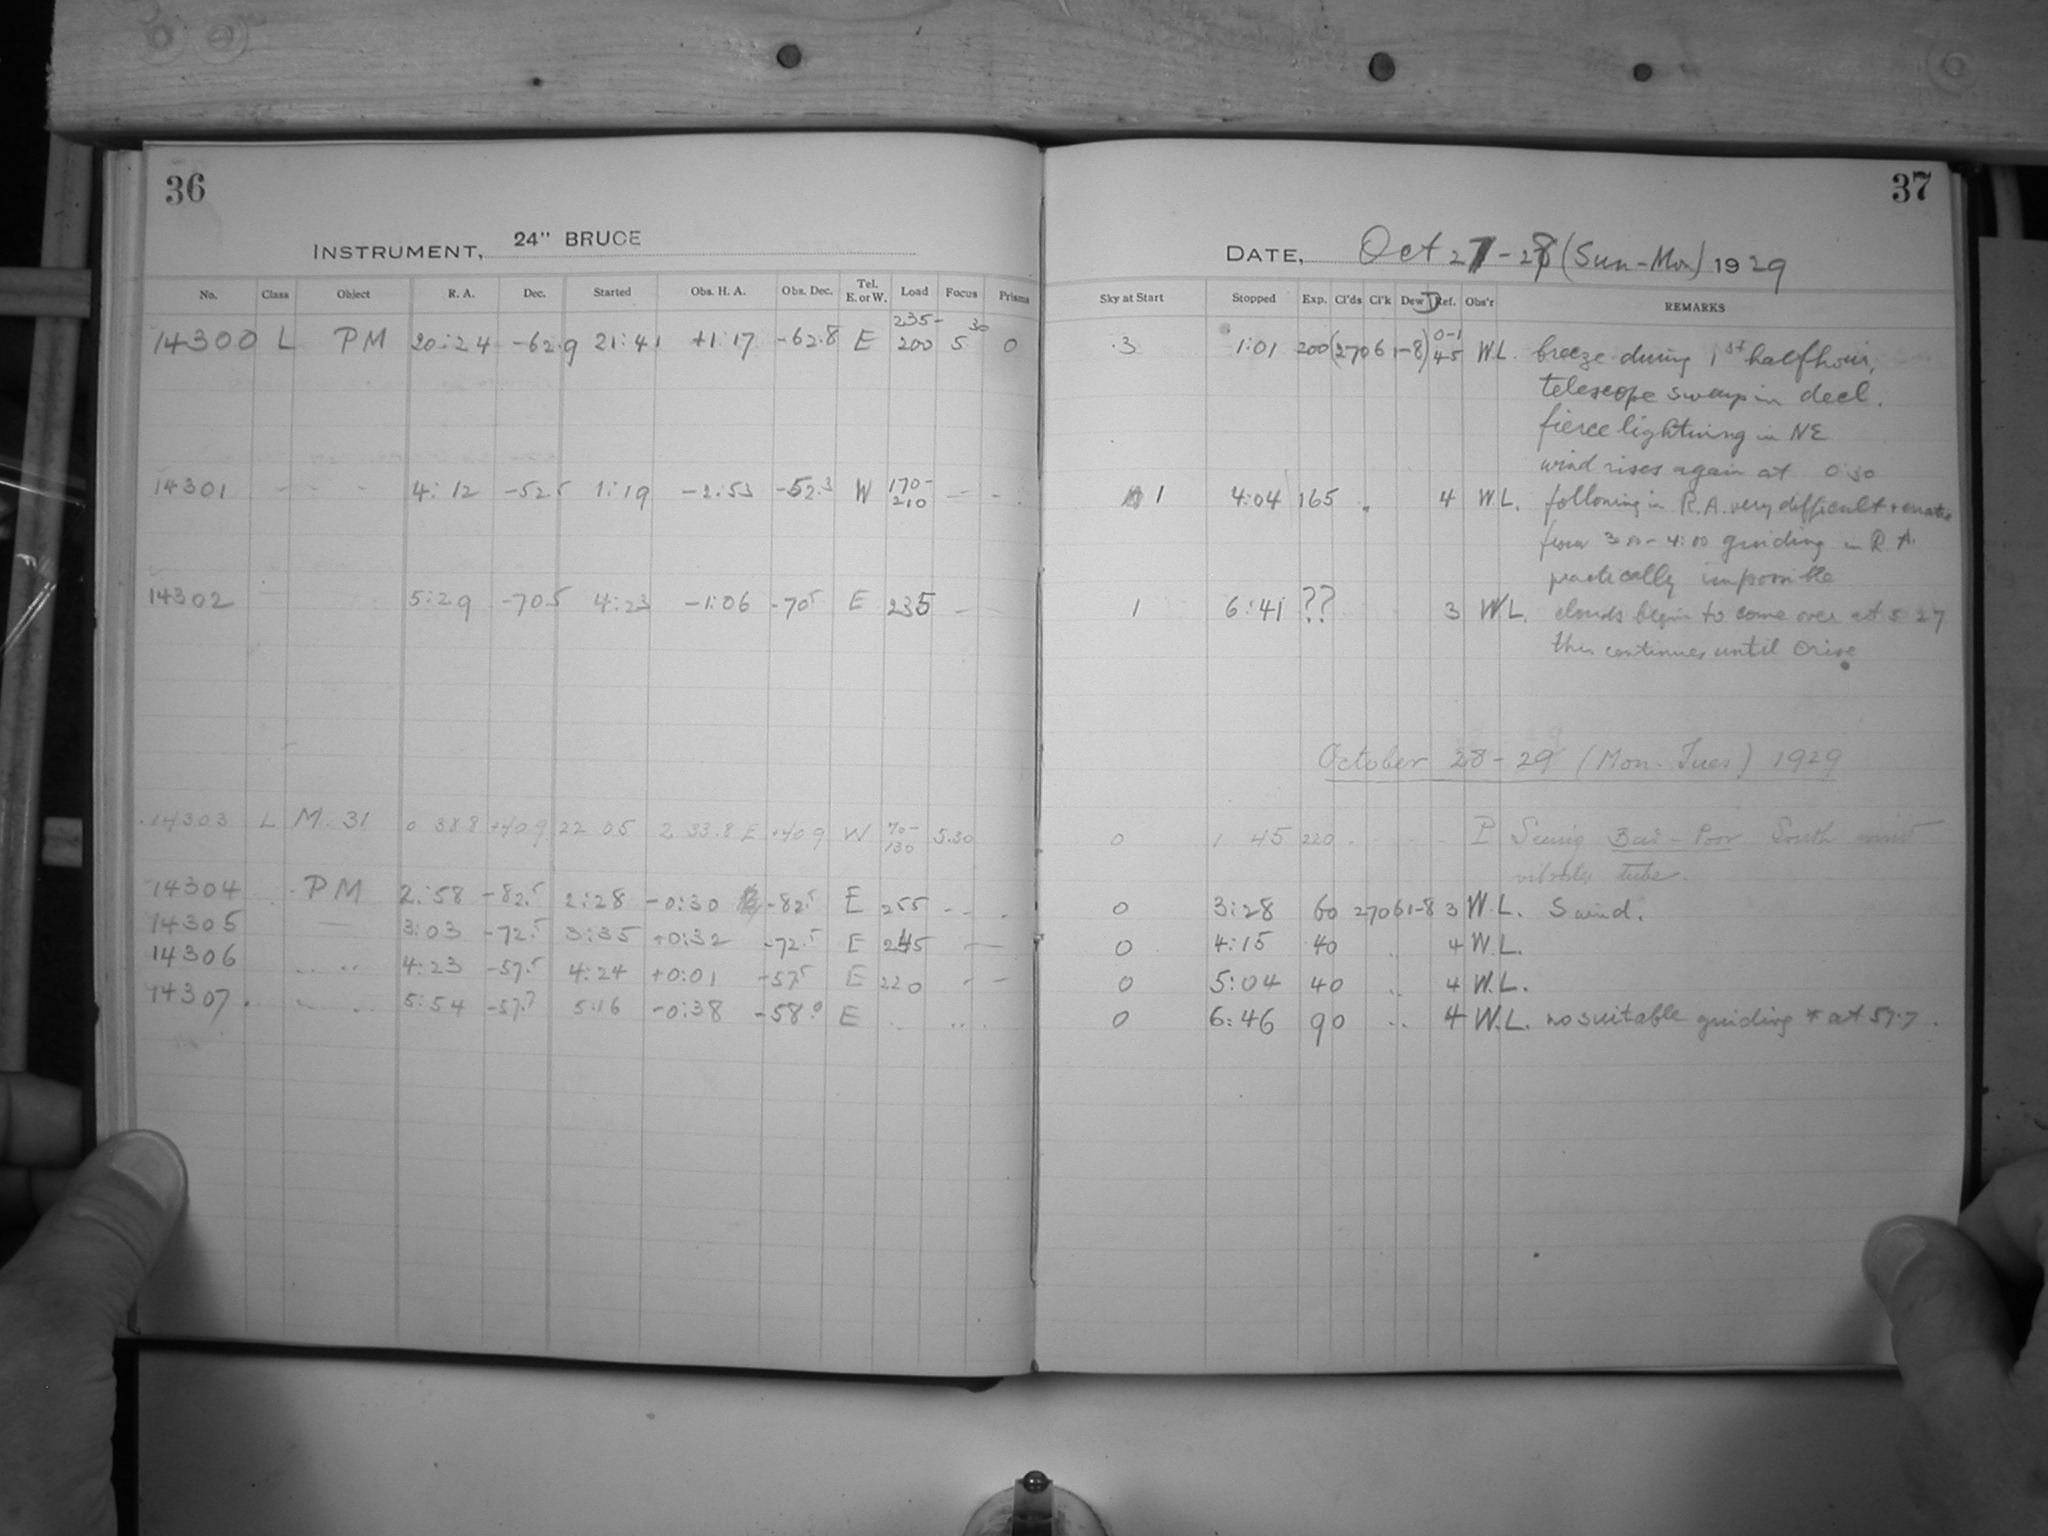 36
INSTRUMENT, 24" BRUCE
No. Class Object R. A. Dec. Started Obs. H. A. Obs. Dec. Tel. E. or W. Load Focus Prisms
14300 L PM 20:24 -62.9 21:41 +1:17 -62.8 E 235-200 5.30 0
14301 - - - 4:12 -52.5 1:19 -2:53 -52.3 W 170-210 - -
14302 5:29 -70.5 4:23 -1:06 -70.5 E 235 -
14303 L M. 31 0 38.8 +40.9 22 05 2 33.8 E +40.9 W 70-130 5.30
14304 PM 2:58 -82.5 2:28 -0:30 -82.5 E 255 - - .
14305 — 3:03 -72.5 3:35 +0:32 -72.5 E 245 - —
14306 .. .. 4:23 -57.5 4:24 +0:01 -57.5 E 220 - -
14307. 5:54 -57.7 5:16 -0:38 -58.0 E
37
DATE, Oct 27-28 (Sun-Mon) 1929
Sky at Start Stopped Exp. Cl'ds Cl'k Dew D Ref. Obs'r REMARKS
3 1:01 200 (270 61-8) 0-1 45 W.L. breeze during 1st half hour,
telescope sways in decl.
fierce lightning in NE
wind rises again at 0:30
1 4:04 165 " 4 W.L. following in R.A. very difficult + erratic
from 3:00-4:00 guiding in R.A.
practically impossible
1 6:41 ?? 3 W.L. clouds begin to come over at 5 27
this continues until
October 28-29 (Mon-Tues) 1929
0 1 45 220 P Seeing Bad-Poor South wind
vibrates tube.
0 3:28 60 270 61-8 3 W.L. S wind.
0 4:15 40 .. 4 W.L.
0 5:04 40 .. 4 W.L.
0 6:46 90 .. 4 W.L. no suitable guiding * at 57.7.